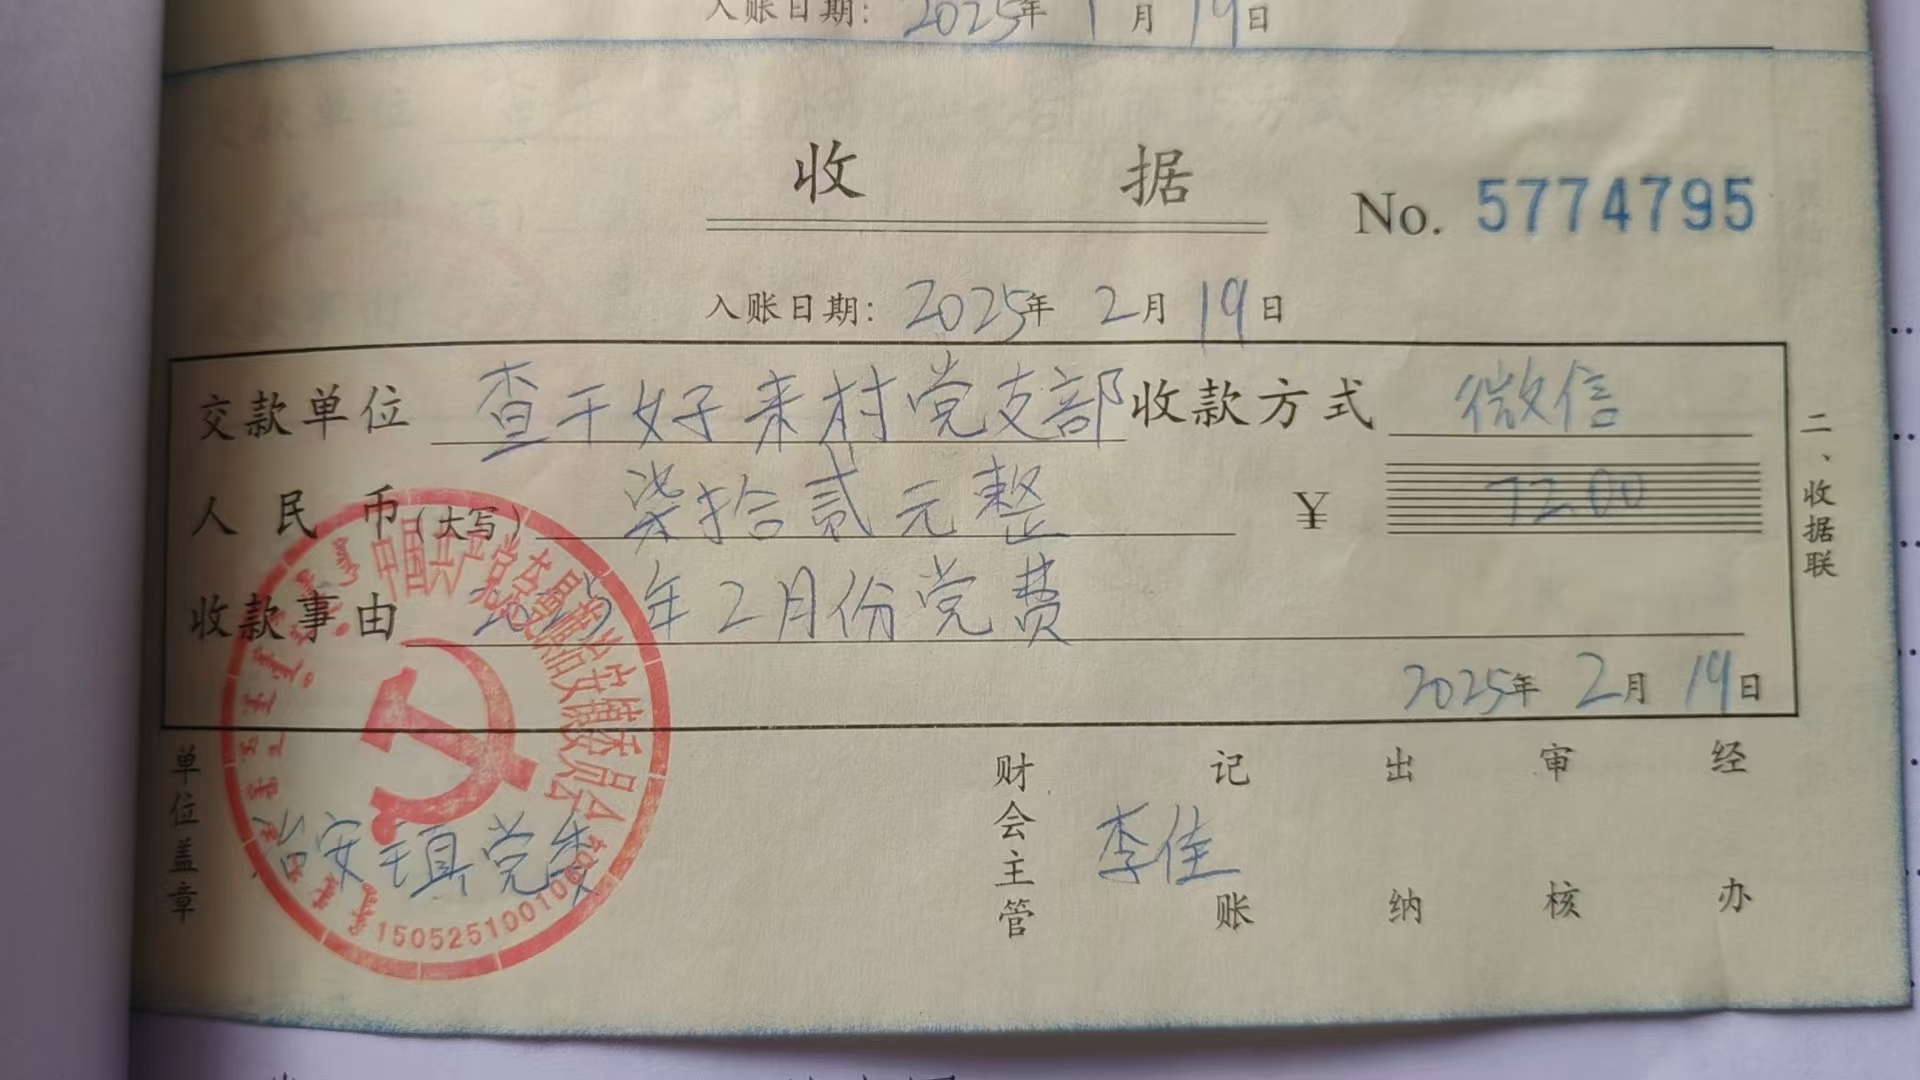 入账日期：2025年 1月 19日
收 据
No. 5774795
入账日期：2025年 2月 19日
交款单位 查干好来村党支部 收款方式 微信
人民币(大写) 柒拾贰元整 ¥ 72.00
收款事由 2025年2月份党费
2025年 2月 19日
二、收据联
单位盖章 治安镇党委
财会主管 李佳 记账 出纳 审核 经办
中国共产党奈曼旗治安镇委员会